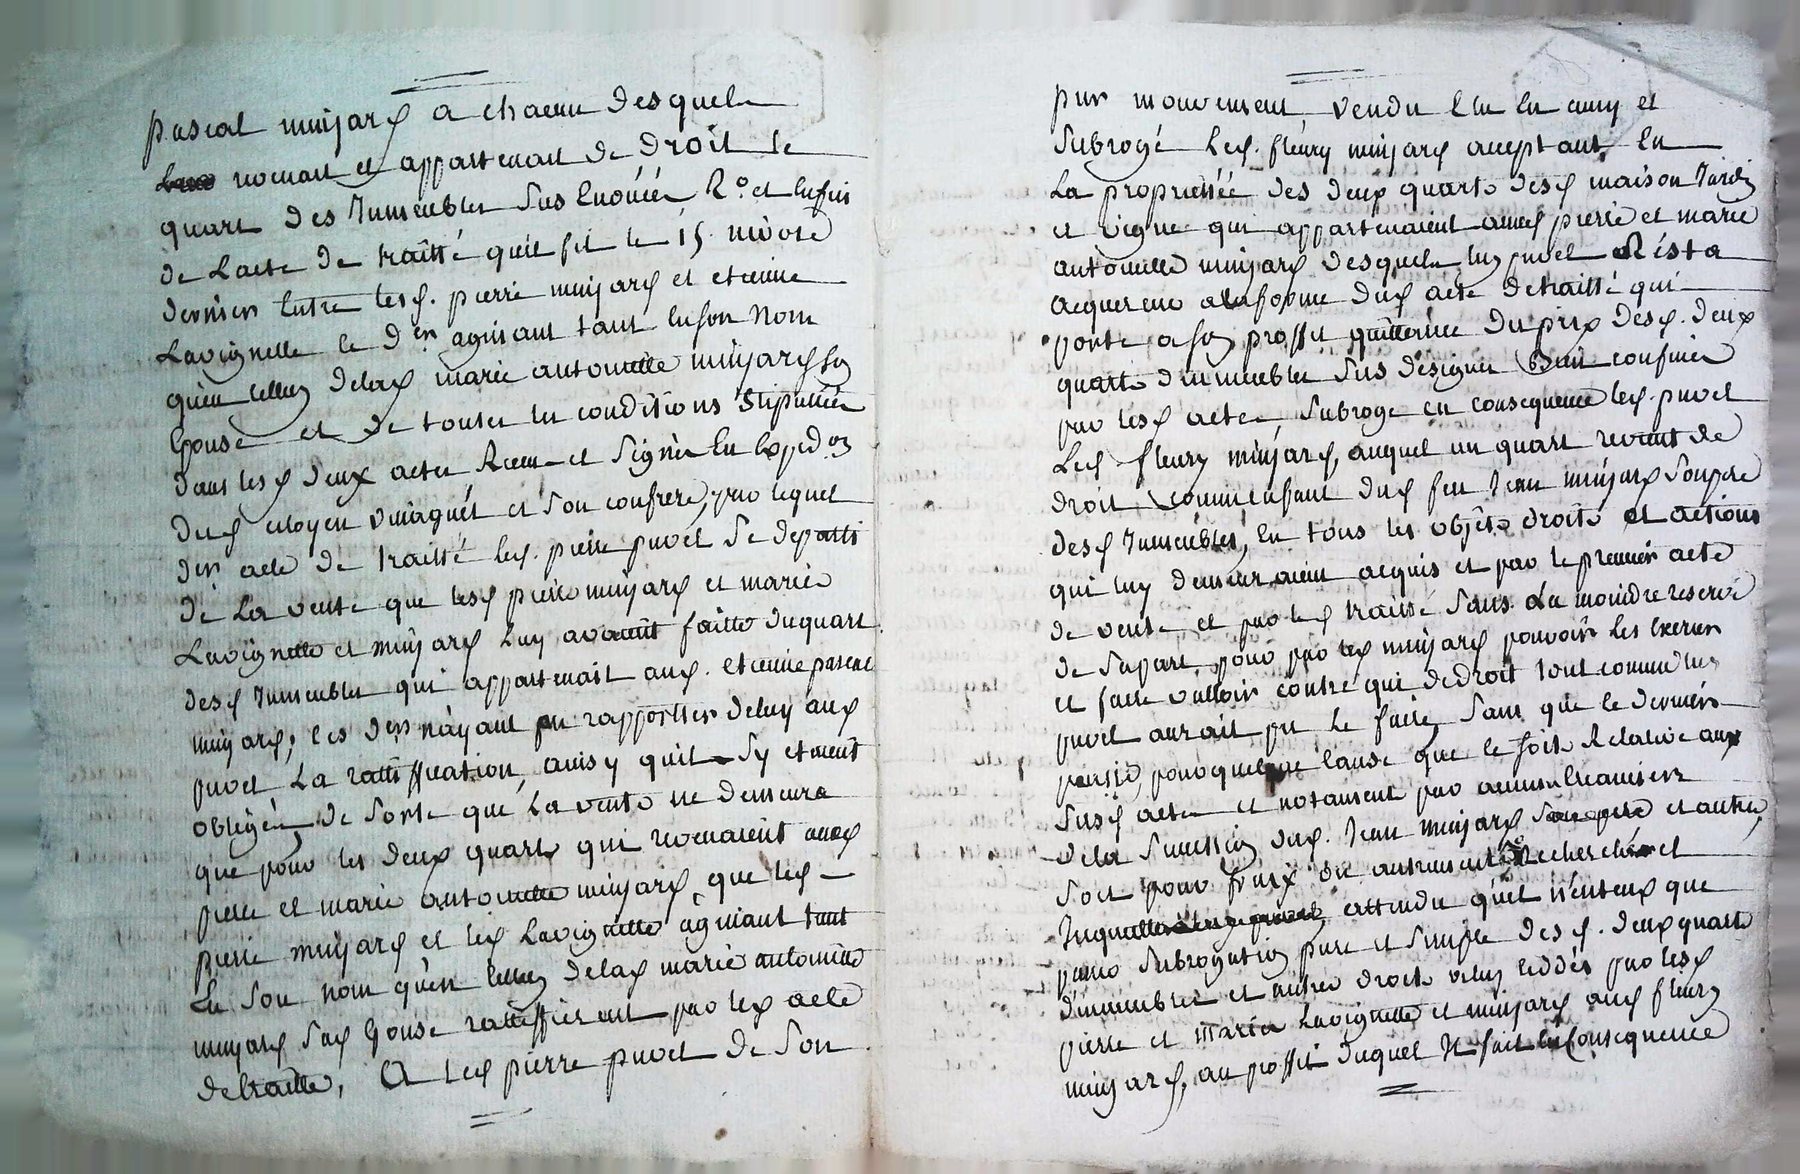 pascal minjard a chacun desquels
revenait et appartenait de droit le
quart des Immeubles sus Enoncés 2.° et enfin
de L'acte de traitté qu'il fit le 15 nivose
dernier Entre lesd. pierre minjard et etienne
Lavignette le d.er agissant tant En son Nom
qu'en celluy delad marie antoinette minjard sa
Epouse et de toutes les conditions Stipullées
dans lesd deux actes Recus et Signés En Expéd.on
dud citoyen et Son confrere, par lequel
d.er acte de traitté led. pierre puvel Se départit
de La vente que lesd pierre minjard et marie
Lavignette et minjard Luy avaient faitte du quart
desd Immeubles qui appartenait aud. etienne pascal
minjard, les d.ers n'ayant pu rapporter deluy aud
puvel La rattiffication, ainsy quil Sy etaient
obligés, de Sorte que La vente ne demeura
que pour les deux quarts qui revenaient auxd
pierre et marie antoinette minjard, que led
pierre minjard et led Lavignette agissant tant
En Son nom qu'en celluy delad marie antoinette
minjard Sad Epouse rattiffierent par led acte
detraitté, A led pierre puvel de Son
pur mouvement, vendu et
Subrogé Led. fleury minjard acceptant, En
La propriettée des deux quarts desd maison Jardin
et vigne qui appartenaient auxd pierre et marie
antoinette minjard desquels led puvel Resta
acquereur a la forme dud acte detraitté qui
porte a son proffit quittance du prix desd. deux
quarts d'immeubles sus désignés Bien confinés
par lesd actes, Subroge en consequence led. puvel
Led fleury minjard, auquel un quart revient de
droit comme Enfant dud feu Jean minjard Son pere
desd Immeubles, En tous les objets droits et actions
qui luy demeuraient acquis et par le premier acte
de vente et par led traitté Sans La moindre reserve
de Sa part pour par led minjard pouvoir les Exercer
et faire valloir contre qui de droit tout comme led
puvel aurait pu Le faire, Sans que le dernier
pour quelque cause que ce soit Relative aux
Susd actes et notament par
dela Succession dud. Jean minjard et autres
Soit pour prix ou autrement Recherché et
Inquietté attendu qu'il n'entend que
Subrogation pure et Simple desd. deux quarts
d'immeubles et autres droits ceddés par lesd
pierre et Marie Lavignette et minjard aud fleury
minjard, au proffit duquel Il fait En Consequence